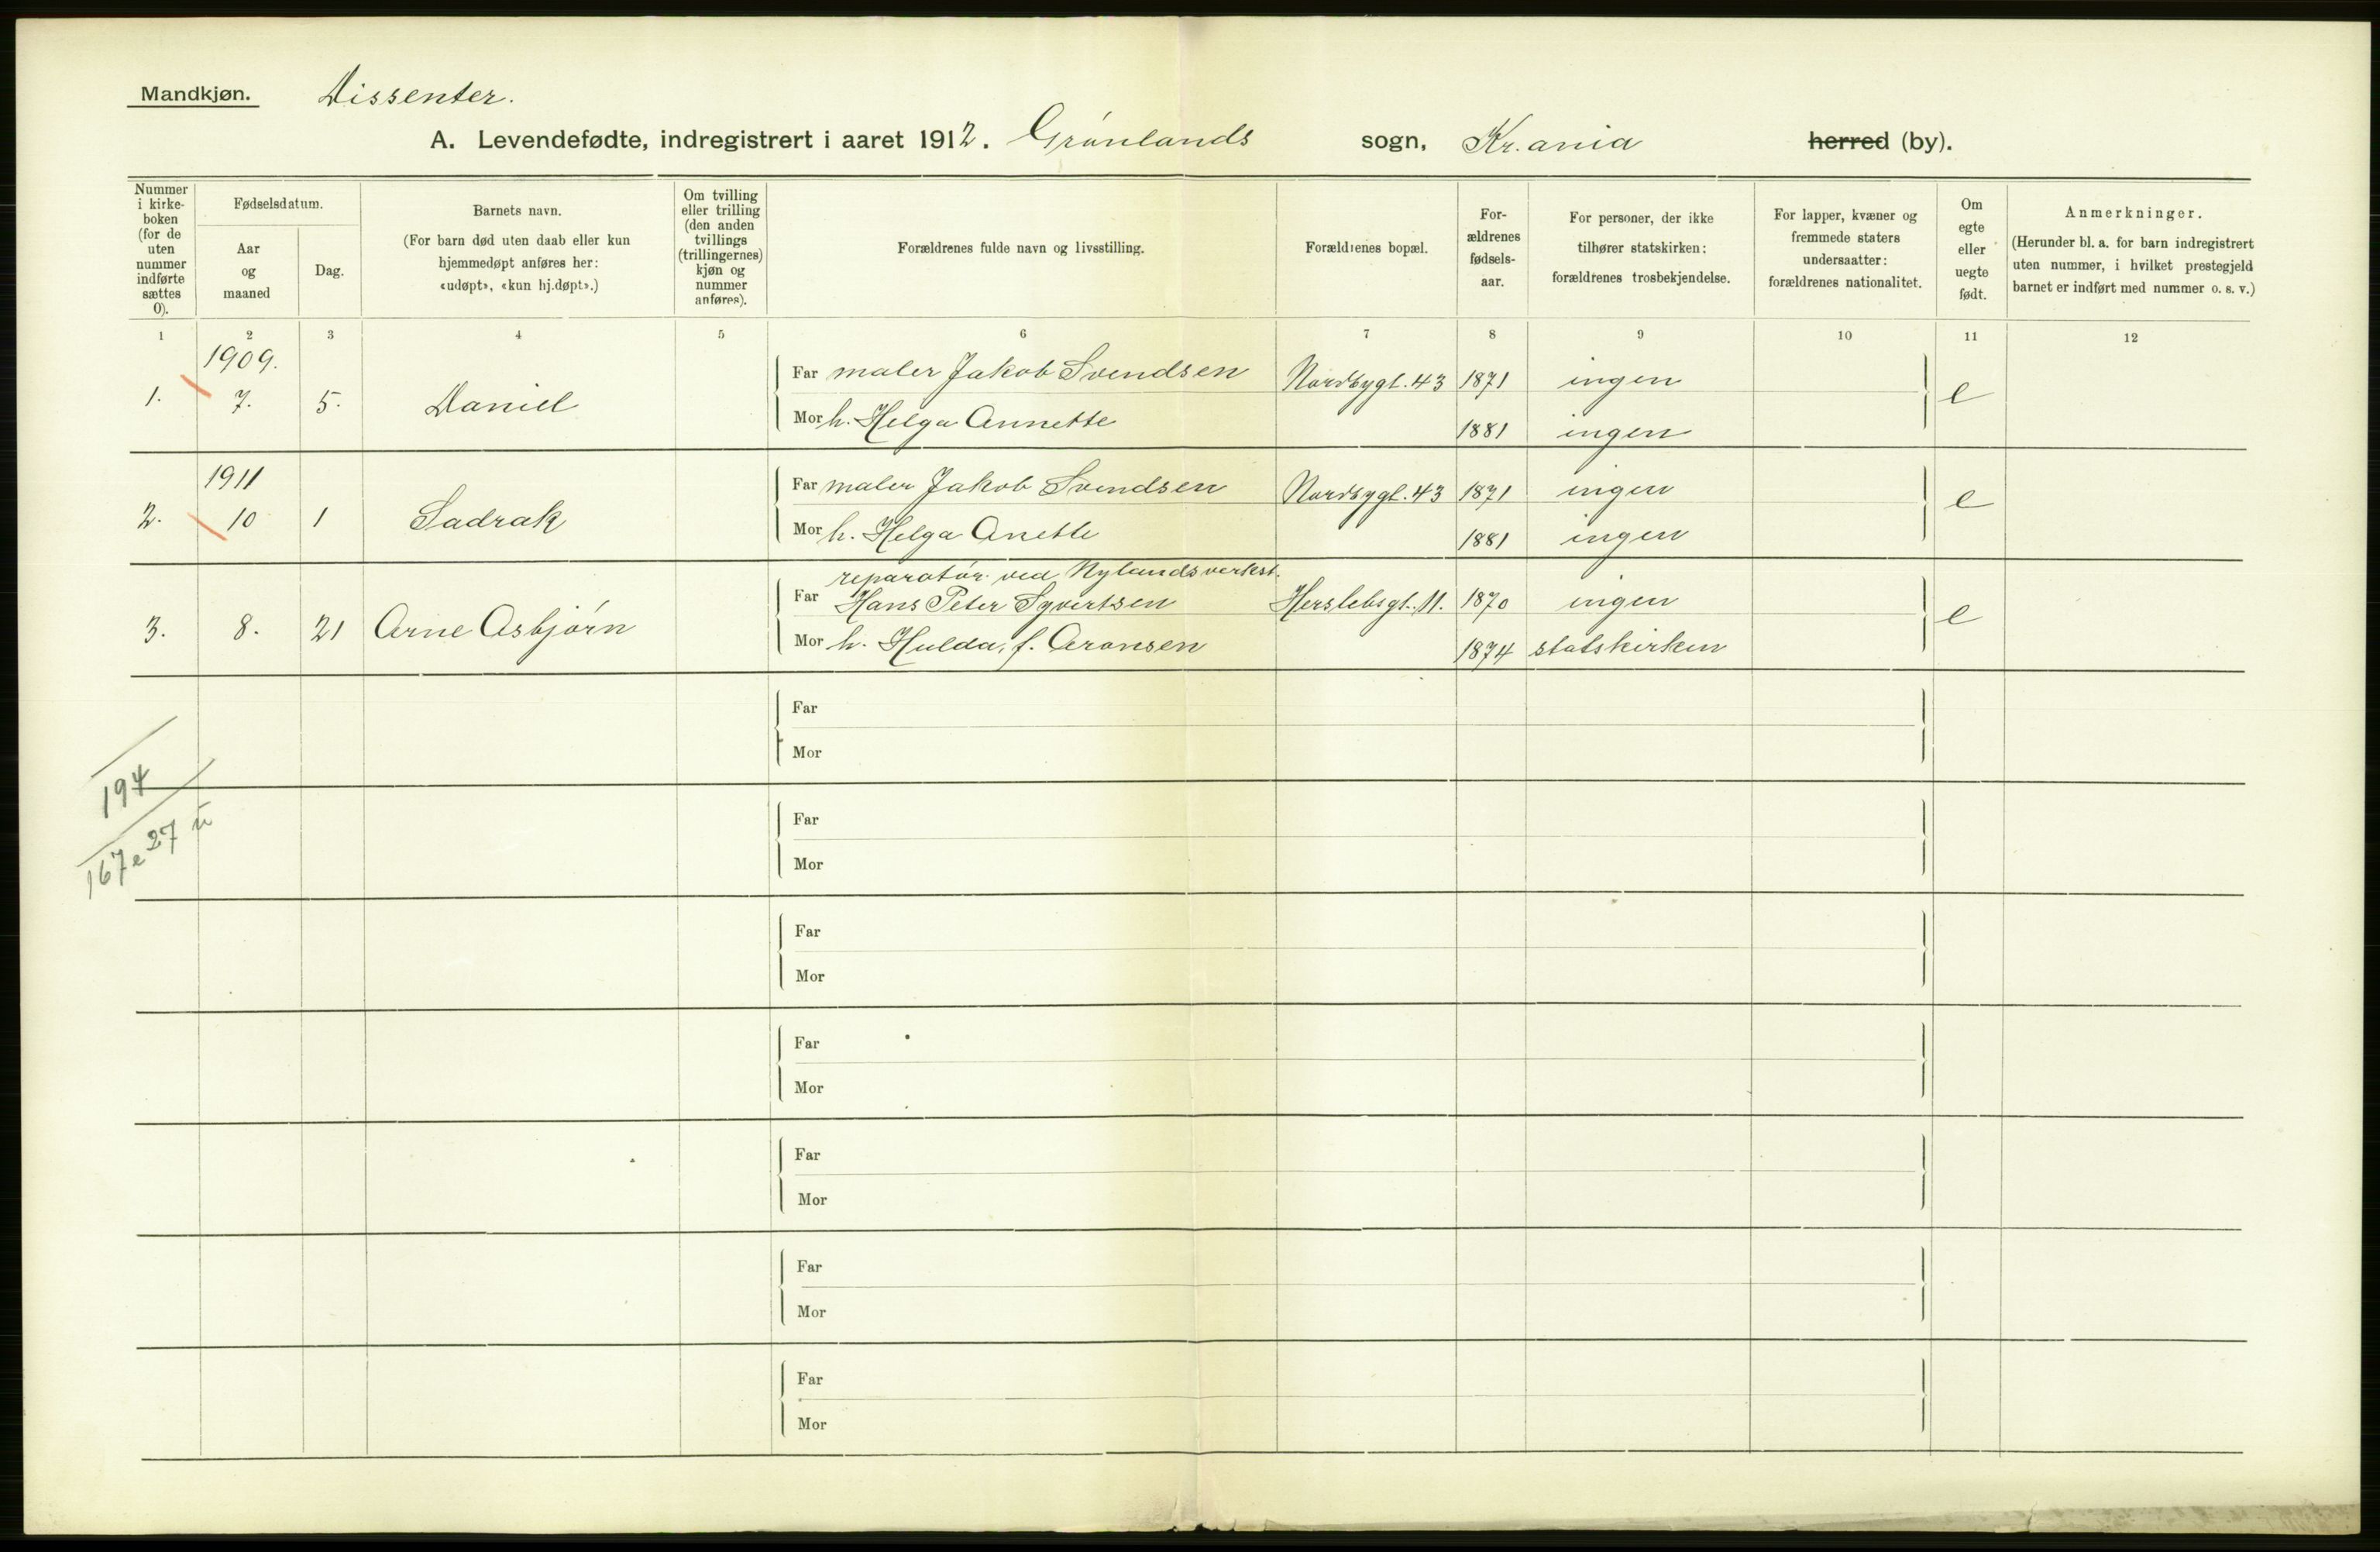 Mandkjøn. Dissenter.
A. Levendefødte, indregistrert i aaret 1912. Grønlands sogn, Kr.ania herred (by).
Nummer i kirke-boken (for de uten nummer indførte sættes 0).
Fødselsdatum.
Aar og maaned
Dag.
Barnets navn.
(For barn død uten daab eller kun hjemmedøpt anføres her: «udøpt», «kun hj.døpt».)
Om tvilling eller trilling (den anden tvillings (trillingernes) kjøn og nummer anføres).
Forældrenes fulde navn og livsstilling.
Forældrenes bopæl.
For-ældrenes fødsels-aar.
For personer, der ikke tilhører statskirken: forældrenes trosbekjendelse.
For lapper, kvæner og fremmede staters undersaatter: forældrenes nationalitet.
Om egte eller uegte født.
Anmerkninger.
(Herunder bl. a. for barn indregistrert uten nummer, i hvilket prestegjeld barnet er indført med nummer o. s. v.)
1 2 3 4 5 6 7 8 9 10 11 12
1909.
1. 7. 5. Daniel Far maler Jakob Svendsen Nordbygt. 43 1871 ingen e
Mor h. Helga Annette 1881 ingen
1911
2. 10 1 Sadrak Far maler Jakob Svendsen Nordbygt. 43 1871 ingen e
Mor h. Helga Anette 1881 ingen
reparatør ved Nylands verkst.
3. 8. 21 Arne Asbjørn Far Hans Peter Syvertsen Herslebsgt. 11. 1870 ingen e
Mor h. Hulda, f. Aronsen 1874 statskirken
Far
Mor
194
167 e 27 u
Far
Mor
Far
Mor
Far
Mor
Far
Mor
Far
Mor
Far
Mor